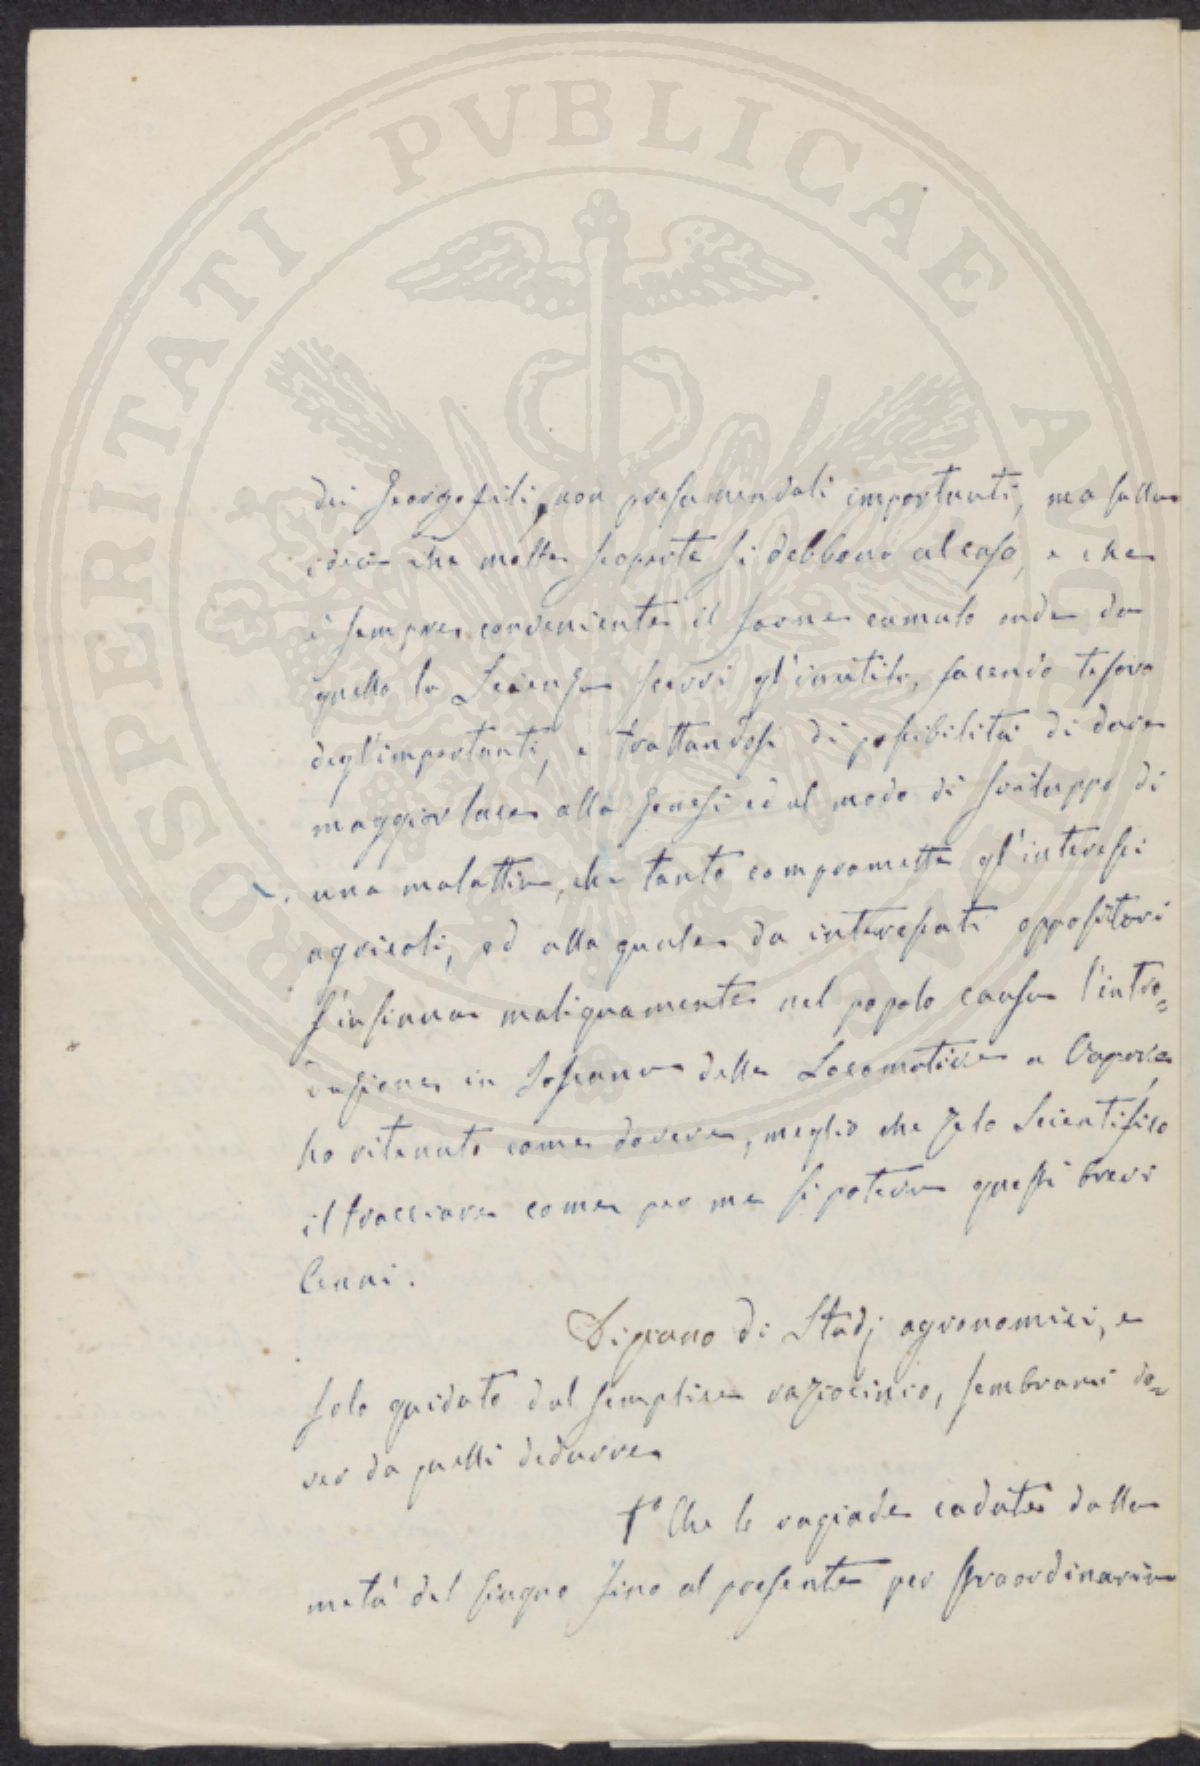 PROSPERITATI PUBLICAE AUGENDAE
dei Georgofili, non presumendoli importanti, ma sulla
idea che molte scoperte si debbono al caso, e che
è sempre conveniente il farne cumulo onde da
quello la Scienza scevri gl'inutili, facendo tesoro
degl'importanti, e trattandosi di possibilità di dare
maggior luce alla genesi ed al modo di sviluppo di
una malattia, che tanto compromette gl'interessi
agricoli, ed alla quale da interessati oppositori
s'insinua malignamente nel popolo causa l'intro=
duzione in Toscana delle Locomotive a Vapore,
ho ritenuto come dovere, meglio che zelo Scientifico
il tracciare come per me si poteva questi brevi
Cenni.
Digiuno di Studj agronomici, e
solo guidato dal semplice raziocinio, sembrami do=
ver da quelli dedurre
1° Che le rugiade cadute dalla
metà del Giugno fino al presente per straordinaria